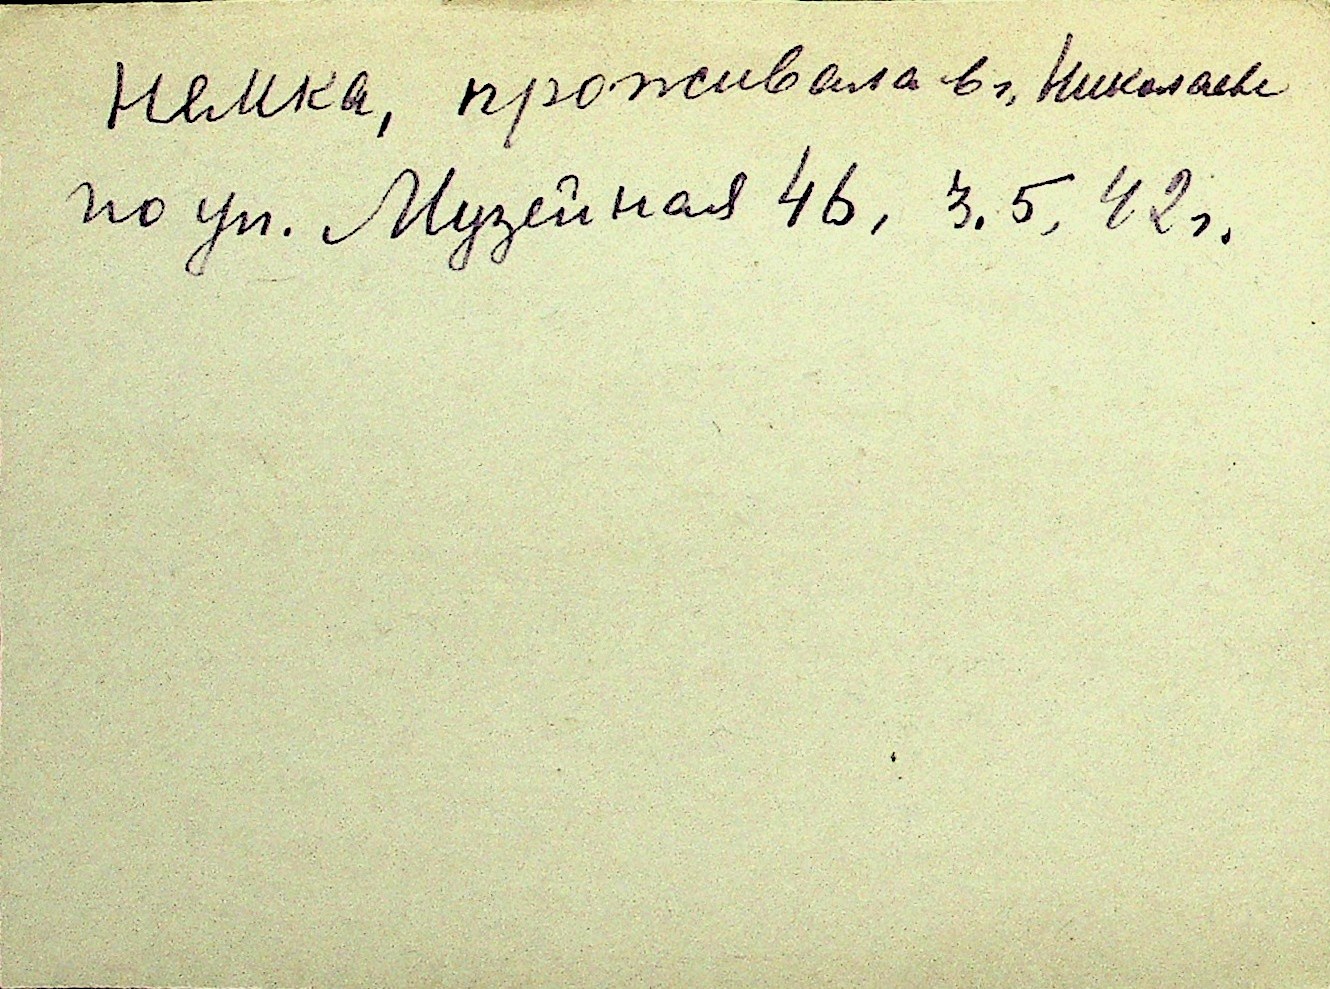 Немка, проживала в г. Николаеве
по ул. Музейная 46, 3.5.42 г.